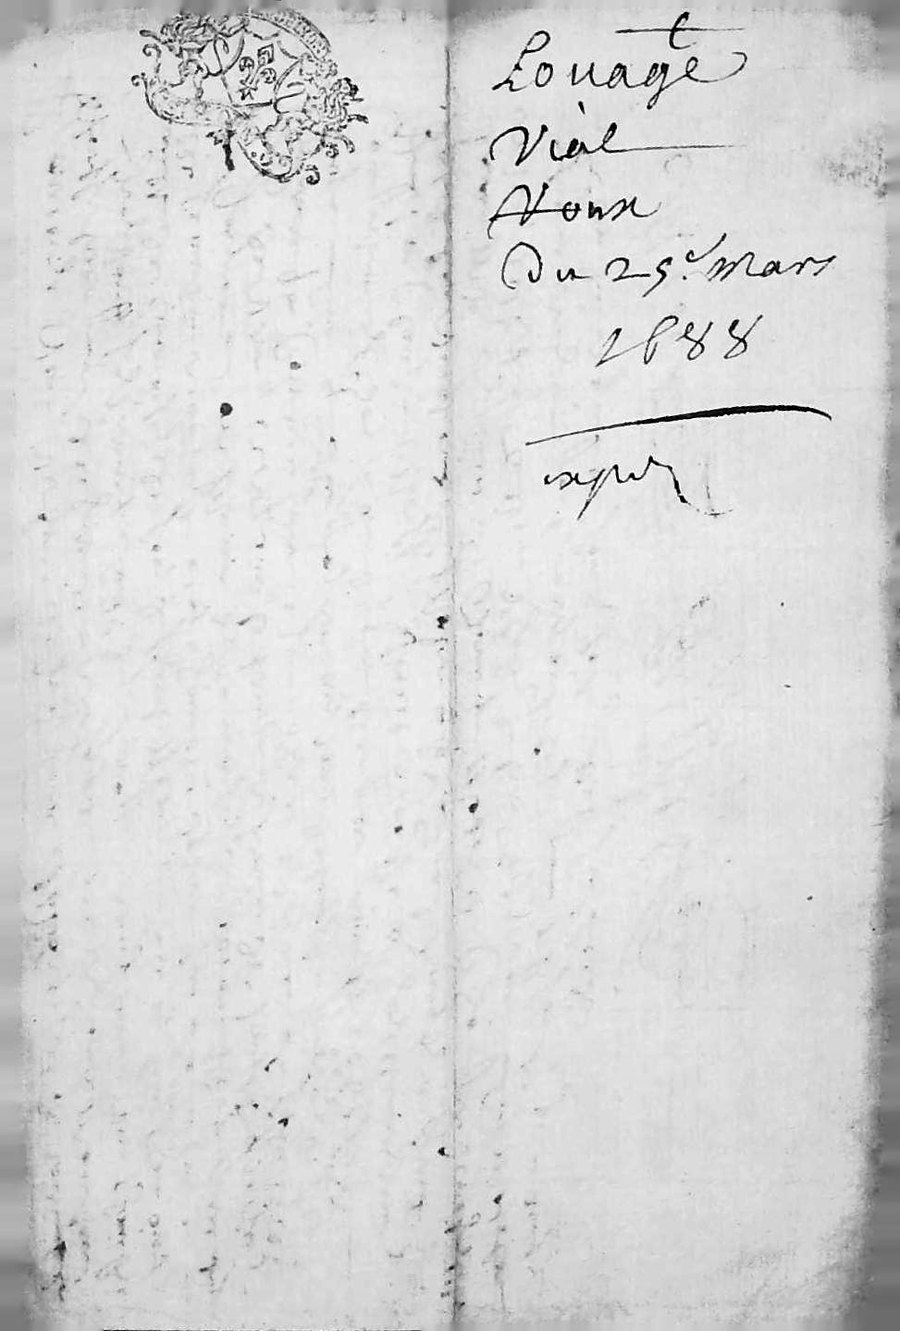 Louage
Vial
Roux
Du 25e mars
1688
exped